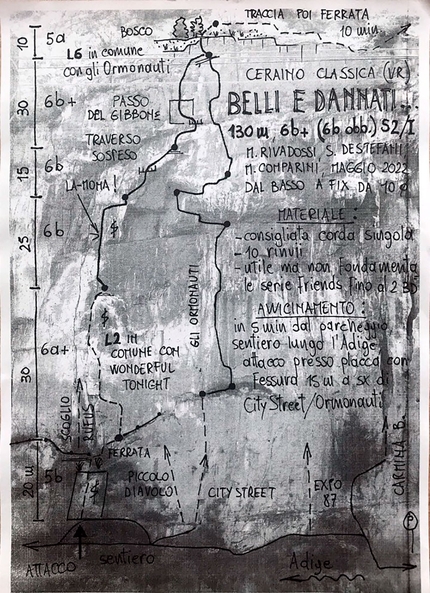 TRACCIA POI FERRATA
10 min
BOSCO
10
5a
L6 in comune
con gli Ormonauti
CERAINO CLASSICA (VR)
BELLI E DANNATI
130 m, 6b+ (6b obb.) S2/I
M. RIVADOSSI, S. DESTEFANI,
M. COMPARINI, MAGGIO 2022
DAL BASSO A FIX DA 10 Ø
30
6b+
PASSO
DEL GIBBONE
TRAVERSO
SOSPESO
15
6b
LA-MOMA!
MATERIALE:
-consigliata corda singola
-10 rinvii
-utile ma non fondamenta
le serie friends fino al 2 BD
25
6b
GLI ORMONAUTI
AVVICINAMENTO:
in 5 min dal parcheggio
sentiero lungo l'Adige
attacco presso placca con
fessura 15 m a sx di
City Street/Ormonauti
30
6a+
L2 IN
COMUNE CON
WONDERFUL
TONIGHT
SCOGLIO
RUFUS
FERRATA
20 m
5b
PICCOLO
DIAVOLO
CITY STREET
EXPO
87
CARMINA B.
P
ATTACCO
sentiero
Adige